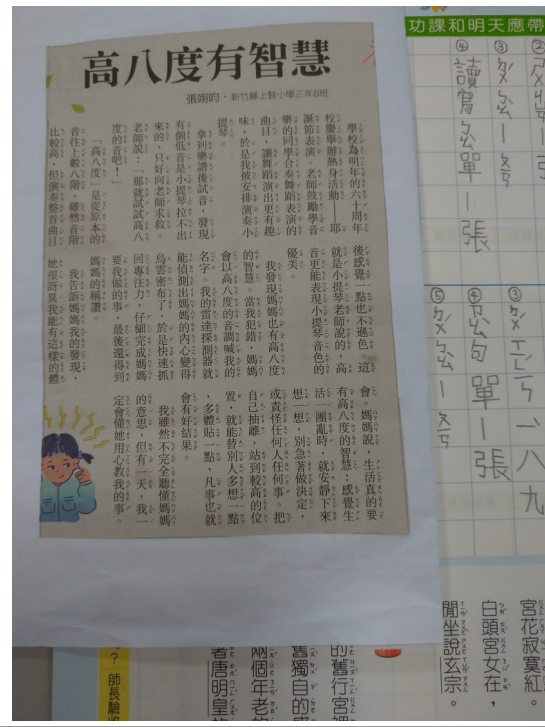 高八度有智慧
張翊昀・新竹縣上智小學三年B班
學校為明年的六十周年
校慶舉辦熱身活動,耶
誕節表演。老師鼓勵學音
樂的同學合奏舞蹈表演的
曲目,讓舞蹈演出更有趣
味,於是我被安排演奏小
提琴。
拿到樂譜後試音,發現
有個低音是小提琴拉不出
來的,只好向老師求救。
老師說:「那就試試高八
度的音吧!」
「高八度」是從原本的
音往上數八階,雖然音階
比較高,但演奏整首曲目
後感覺一點也不遜色。這
就是小提琴老師說的,高
音更能表現小提琴音色的
優美。
我發現媽媽也有高八度
的智慧。當我犯錯,媽媽
會以高八度的音調喊我的
名字。我的雷達探測器就
能偵測出媽媽的內心變得
烏雲密布了,於是快速抓
回專注力,仔細完成媽媽
要我做的事,最後還得到
媽媽的稱讚。
我告訴媽媽我的發現,
她很訝異我能有這樣的體
會。媽媽說,生活真的要
有高八度的智慧:感覺生
活一團亂時,就安靜下來
想一想,別急著做決定,
或責怪任何人任何事。把
自己抽離,站到較高的位
置,就能替別人多想一點
,多體貼一點,凡事也就
會有好結果。
我雖然不完全聽懂媽媽
的意思,但有一天,我一
定會懂她用心教我的事。
功課和明天應帶
②
③ ㄆㄠ一
④ 讀寫ㄠ單一張
③ 一、八、九
④ ㄗㄠ句單一張
⑤
宮花寂寞紅。
白頭宮女在,
閒坐說玄宗。
的舊行宮裡
舊獨自的
兩個年老的
著唐明皇
?師長驗